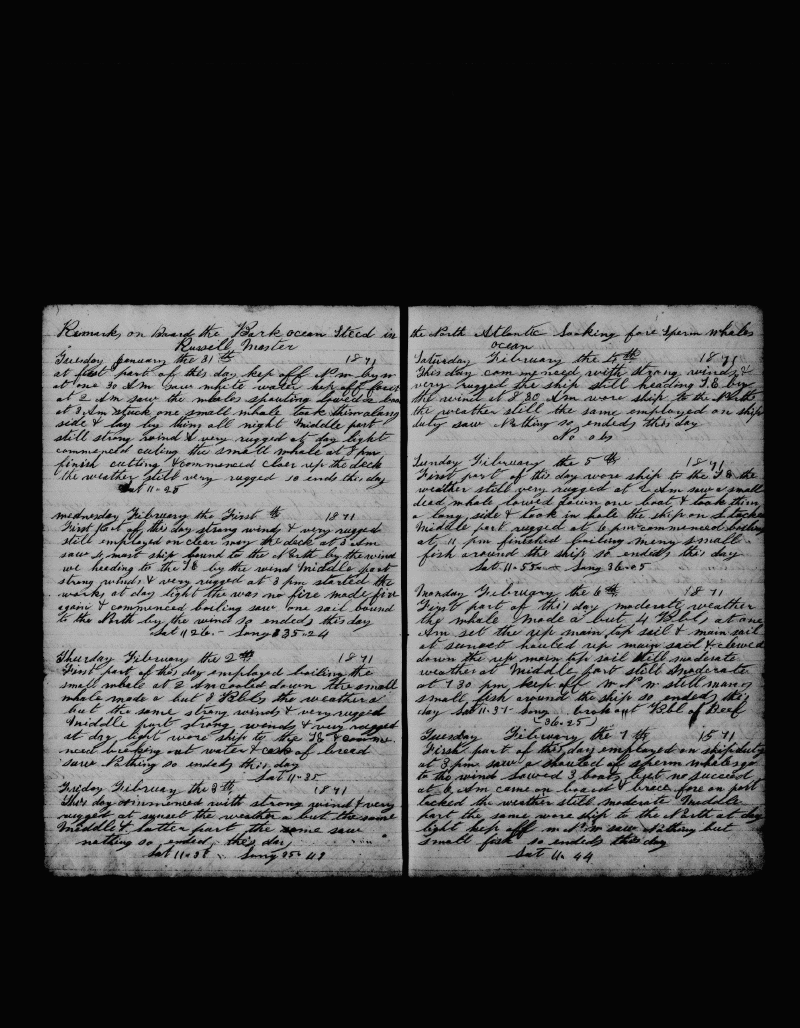 Remarks on Board the Bark ocean Steed in
Russell Master
Tuesday January the 31th 1871
at first part of this day kep off N.W by W
at one 30 Am saw white water kep off forit
at 2 Am saw the whales spouting lowed a boa
at 3 Am stuck one small whale took him along
side & lay by him all night Middle part
still strong wind & very rugged at day light
commenced cuting the small whale at 8 pm
finish cutting & commenced clear up the deck
the weather still very rugged so ends this day
Lat 11-25
Wednesday February the First th 1871
First part of the day strong wind & very rugged
still employed on clear up the deck at 3 Am
saw 2 mast ship bound to the North by the wind
we heading to the S E by the wind Middle part
strong winds & very rugged at 3 pm started the
works at day light the was no fire made fire
again & commenced boiling saw one sail bound
to the North by the wind so ends this day
Lat 11 26 - Long 35-24
Thursday February the 2th 1871
First part of this day employed boiling the
small whale at 2 Am cooled down the small
whale made a but 8 Bbls the weather a
but the same strong winds & very rugged
Middle part strong winds & very rugged
at day light wore ship to the S E & comme
need breaking out water & cask of bread
saw Nothing so ends this day
Lat 11-35
Friday February the 3th 1871
This day commenced with strong wind & very
rugged at sunset the weather a but the same
Middle & latter part the same saw
nothing so ended this day
Lat 11-38 Long 35-48
the North Atlantic Looking fore Sperm Whales
ocean
Saturday February the 4th 1871
This day commenced with strong winds &
very rugged the ship still heading S.E by
the wind at 8 30 Am wore ship to the North
the weather still the same employed on ship
duty saw Nothing so ends this day
No ob
Sunday February the 5th 1871
First part of this day wore ship to the S E the
weather still very rugged at 2 Am saw a small
dead whale lowed down one boat & took him
a long side & took in hale the ship on S tacke
Middle part rugged at 6 pm commenced boiling
at 11 pm finished boiling meny small
fish around the ship so ends this day
Lat 11-55 Long 36-05
Monday February the 6th 1871
First part of this day moderate weather
the whale made a but 4 Bbls at one
Am set the rep main top sail & main sail
at sunset hauled rep main said & clewed
down the rep main top sail still moderate
weather at Middle part still moderate
at 7 30 pm kep off W N W still many
small fish around the ship so ended this
day Lat 11-37 Long broke out Bbl of Beef
(36-25)
Tuesday February the 7th 1871
First part of this day employed on ship duty
at 3 pm saw a shouled of sperm whales go
to the wind lowed 3 boats but no succeed
at 6 Am came on board & brace fore on port
tacked the weather still moderate Middle
part the same wore ship to the North at day
light kep off W N W saw Nothing but
small fish so ends this day
Lat 11-44